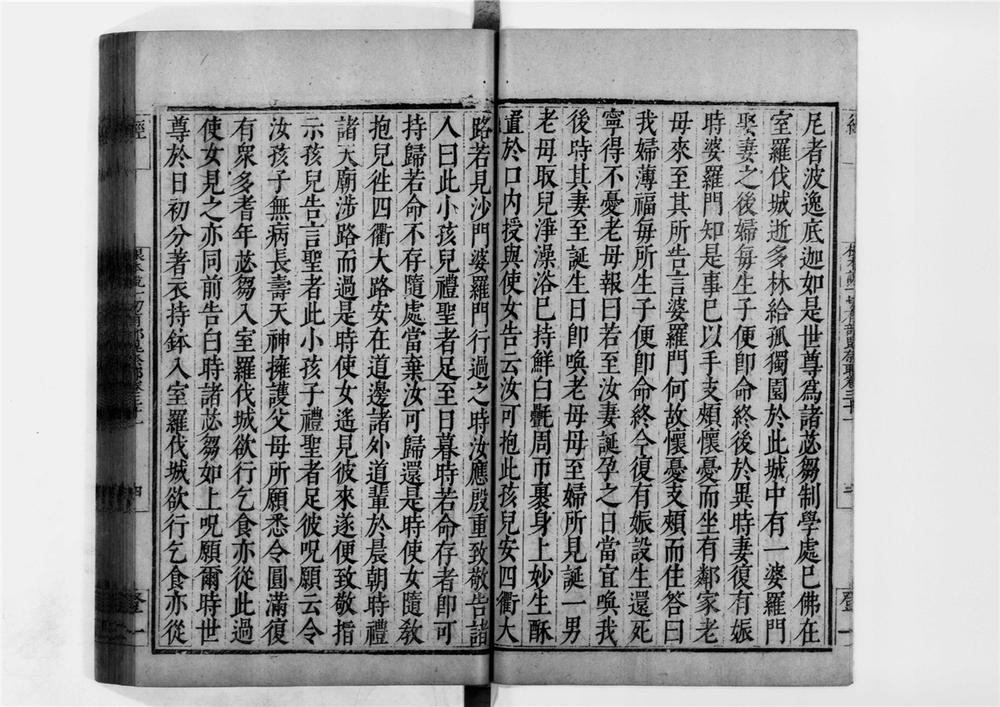 尼者波逸底迦如是世尊爲諸苾芻制學處已佛在
室羅伐城逝多林給孤獨園於此城中有一婆羅門
娶妻之後婦每生子便卽命終後於異時妻復有娠
時婆羅門知是事已以手支頰懷憂而坐有鄰家老
母來至其所告言婆羅門何故懷憂支頰而住答曰
我婦薄福每所生子便卽命終今復有娠設生還死
寧得不憂老母報曰若至汝妻誕孕之日當宜喚我
後時其妻至誕生日卽喚老母母至婦所見誕一男
老母取兒淨澡浴已持鮮白㲲周帀裹身上妙生酥
置於口內授與使女告云汝可抱此孩兒安四衢大
路若見沙門婆羅門行過之時汝應殷重致敬告諸
人曰此小孩兒禮聖者足至日暮時若命存者卽可
持歸若命不存隨處當棄汝可歸還是時使女隨敎
抱兒徃四衢大路安在道邊諸外道輩於晨朝時禮
諸天廟涉路而過是時使女遙見彼來遂便致敬指
示孩兒告言聖者此小孩子禮聖者足彼呪願云令
汝孩子無病長壽天神擁護父母所願悉令圓滿復
有衆多耆年苾芻入室羅伐城欲行乞食亦從此過
使女見之亦同前告曰時諸苾芻如上呪願爾時世
尊於日初分著衣持鉢入室羅伐城欲行乞食亦從